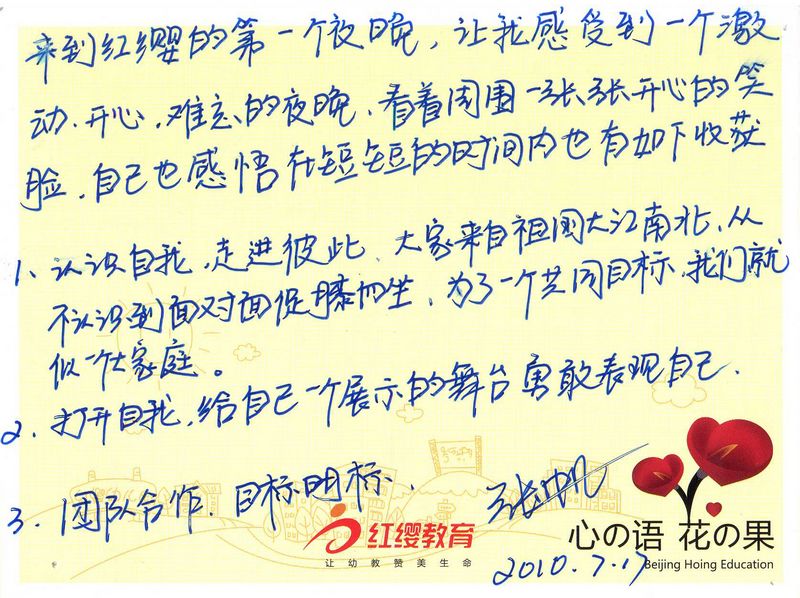 来到红缨的第一个夜晚，让我感受到一个激
动、开心、难忘的夜晚、看着周围一张张开心的笑
脸、自己也感悟在短短的时间内也有如下收获
1、认识自我、走进彼此、大家来自祖国大江南北、从
不认识到面对面促膝而坐，为了一个共同目标、我们就
似一个大家庭。
2、打开自我、给自己一个展示的舞台勇敢表现自己.
3、团队合作、目标明标.
张帆
2010.7.17
红缨教育
让幼教赞美生命
心の语 花の果
Beijing Hoing Education